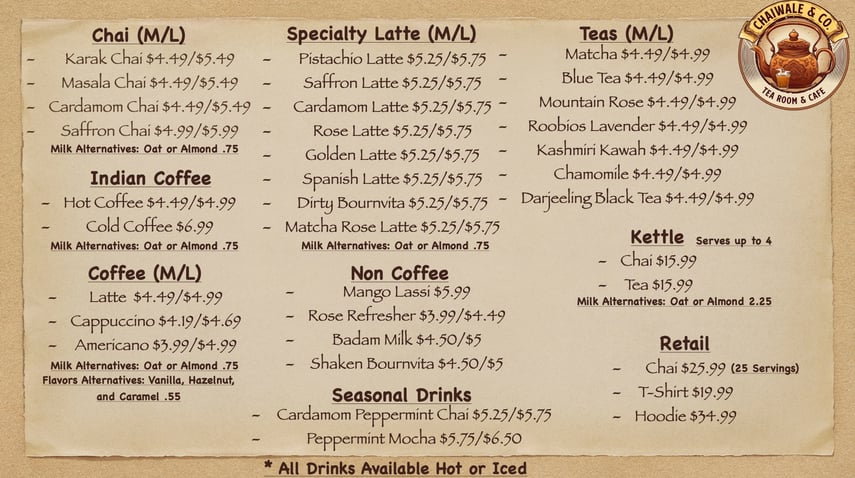 Chai (M/L)
- Karak Chai $4.49/$5.49
- Masala Chai $4.49/$5.49
- Cardamom Chai $4.49/$5.49
- Saffron Chai $4.99/$5.99
Milk Alternatives: Oat or Almond .75
Indian Coffee
- Hot Coffee $4.49/$4.99
- Cold Coffee $6.99
Milk Alternatives: Oat or Almond .75
Coffee (M/L)
- Latte $4.49/$4.99
- Cappuccino $4.19/$4.69
- Americano $3.99/$4.99
Milk Alternatives: Oat or Almond .75
Flavors Alternatives: Vanilla, Hazelnut,
and Caramel .55
Specialty Latte (M/L)
- Pistachio Latte $5.25/$5.75
- Saffron Latte $5.25/$5.75
- Cardamom Latte $5.25/$5.75
- Rose Latte $5.25/$5.75
- Golden Latte $5.25/$5.75
- Spanish Latte $5.25/$5.75
- Dirty Bournvita $5.25/$5.75
- Matcha Rose Latte $5.25/$5.75
Milk Alternatives: Oat or Almond .75
Non Coffee
- Mango Lassi $5.99
- Rose Refresher $3.99/$4.49
- Badam Milk $4.50/$5
- Shaken Bournvita $4.50/$5
Seasonal Drinks
- Cardamom Peppermint Chai $5.25/$5.75
- Peppermint Mocha $5.75/$6.50
* All Drinks Available Hot or Iced
Teas (M/L)
- Matcha $4.49/$4.99
- Blue Tea $4.49/$4.99
- Mountain Rose $4.49/$4.99
- Roobios Lavender $4.49/$4.99
- Kashmiri Kawah $4.49/$4.99
- Chamomile $4.49/$4.99
- Darjeeling Black Tea $4.49/$4.99
Kettle Serves up to 4
- Chai $15.99
- Tea $15.99
Milk Alternatives: Oat or Almond 2.25
Retail
- Chai $25.99 (25 Servings)
- T-Shirt $19.99
- Hoodie $34.99
CHAIWALE & CO.
TEA ROOM & CAFE